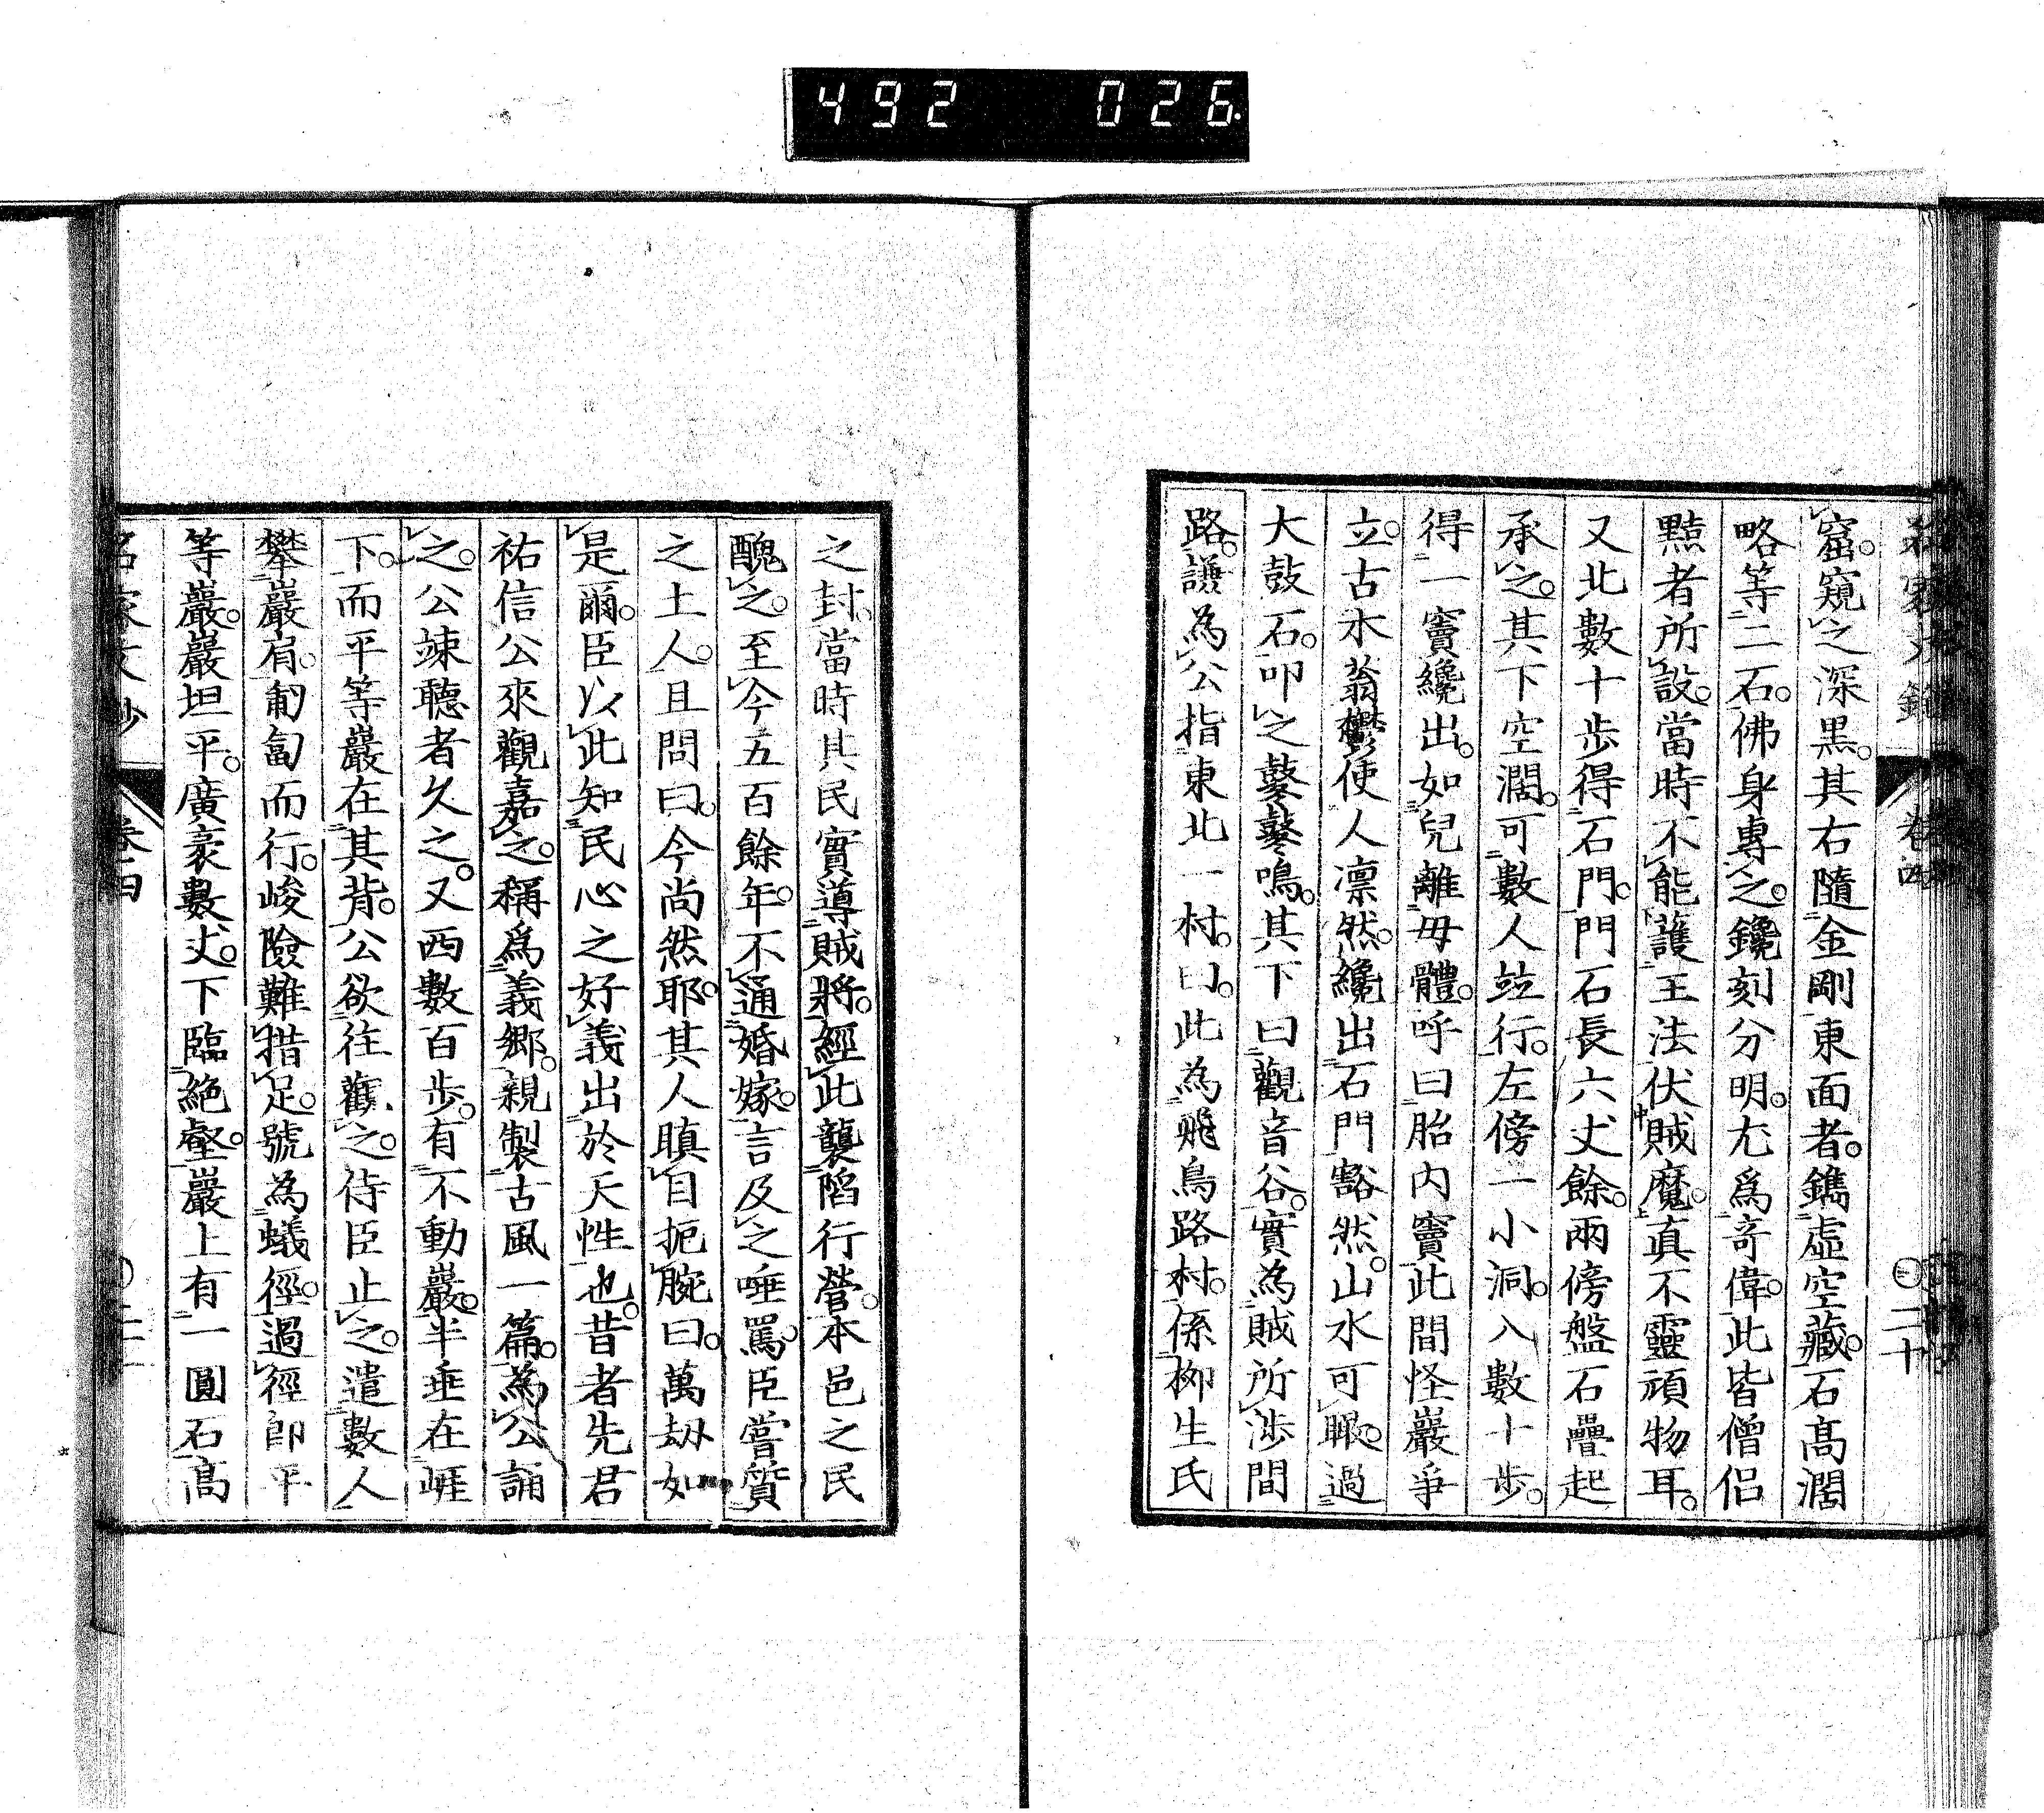 492 026
卷四
二十
窟。窺之深黑。其右隨金剛東面者。鐫虛空藏。石高濶
略等二石。佛身專之。鑱刻分明。尤爲竒偉。此皆僧侶
黠者所設。當時不能護王法伏賊魔。眞不靈頑物耳。
又北數十步得石門。門石長六丈餘。兩傍盤石疊起
承之。其下空濶。可數人竝行。左傍一小洞。入數十步。
得一竇纔出。如兒離母體。呼曰胎内竇此間怪巖爭
立。古木蓊鬱使人凛然。纔出石門豁然。山水可眺。過
大鼓石。叩之鼕鼕鳴。其下曰觀音谷。實為賊所渉間
路。謙為公指東北一村。曰。此為飛鳥路村。係柳生氏
之封。當時其民實導賊將。經此襲陷行營。本邑之民
醜之。至今五百餘年。不通婚嫁。言及之唾罵。臣嘗質
之土人。且問曰。今尚然耶。其人瞋目扼腕曰。萬劫如
是爾。臣以此知民心之好義出於天性也。昔者先君
祐信公來觀嘉之。稱爲義鄉。親製古風一篇。為公誦
之。公竦聽者久之。又西數百步。有不動巖。半垂在崕
下。而平等巖在其背。公欲往觀之。侍臣止之。遣數人
攀巖肩。匍匐而行。峻險難措足。號為蟻徑。過徑即平
等巖。巖坦平。廣袤數丈。下臨絶壑。巖上有一圓石高
名家文抄
卷四